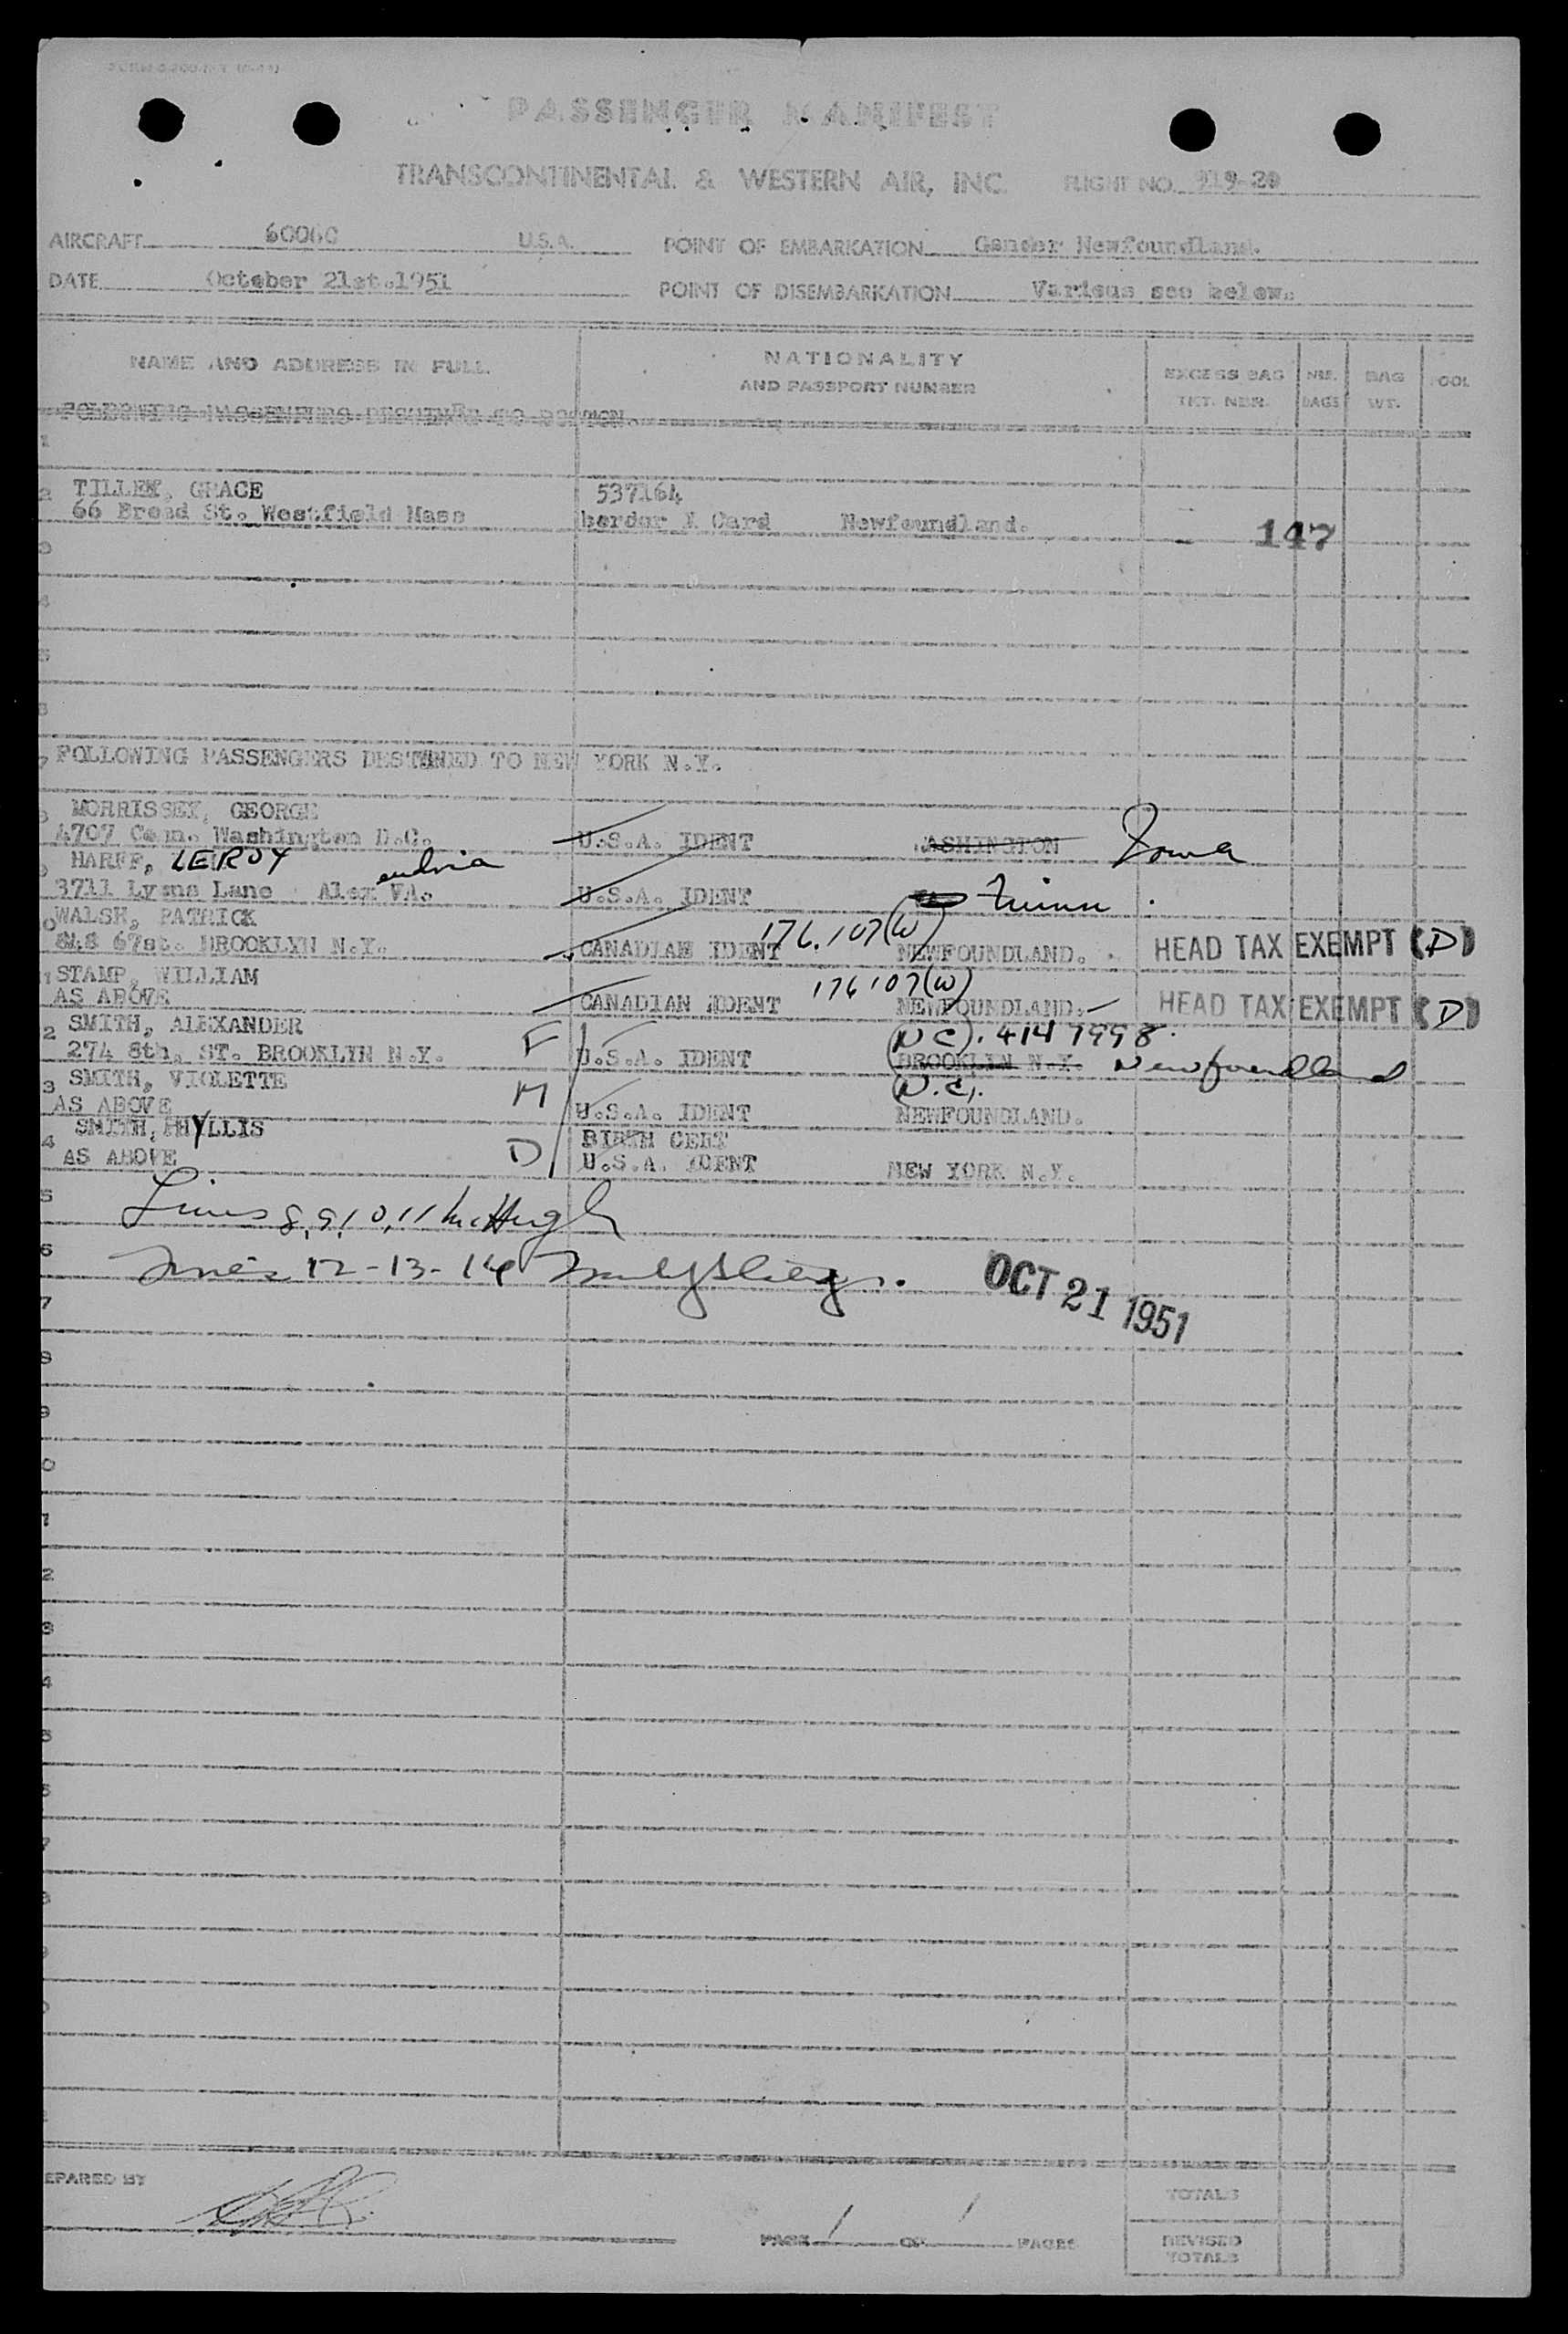 PASSENGER MANIFEST
TRANSCONTINENTAL & WESTERN AIR, INC. FLIGHT NO. 919-20
AIRCRAFT 60060 U.S.A. POINT OF EMBARKATION Gander Newfoundland.
DATE October 21st.1951 POINT OF DISEMBARKATION Various see below.
NAME AND ADDRESS IN FULL NATIONALITY AND PASSPORT NUMBER EXCESS BAG TKT. NBR. NBR. BAGS BAG WT. COL
FOLLOWING PASSENGERS DESTINED TO BOSTON.
1
2 TILLEY, GRACE 537164
66 Broad St. Westfield Mass border X Card Newfoundland. - 147
3
4
5
7 FOLLOWING PASSENGERS DESTINED TO NEW YORK N.Y.
MORRISSEY, GEORGE
4707 Conn. Washington D.C. U.S.A. IDENT WASHINGTON Iowa
HARFF, LEROY
3711 Lyons Lane Alex andria VA. U.S.A. IDENT Minn.
0 WALSH, PATRICK 176.107(W)
848 67st. BROOKLYN N.Y. CANADIAN IDENT NEWFOUNDLAND. HEAD TAX EXEMPT (D)
1 STAMP, WILLIAM 176107(W)
AS ABOVE CANADIAN IDENT NEWFOUNDLAND. HEAD TAX EXEMPT (D)
2 SMITH, ALEXANDER F (N.C). 4147998.
274 8th, ST. BROOKLYN N.Y. U.S.A. IDENT BROOKLYN N.Y. Newfoundland
3 SMITH, VIOLETTE M (N.C).
AS ABOVE U.S.A. IDENT NEWFOUNDLAND.
4 SMITH, PHYLLIS D BIRTH CERT
AS ABOVE U.S.A. IDENT NEW YORK N.Y.
5 Lines 8,9,10,11 McHugh
6 Lines 12-13-14
OCT 21 1951
7
8
9
0
1
2
3
4
5
6
7
8
9
0
EPARED BY
PAGE 1 OF 1 PAGES
TOTALS
REVISED TOTALS